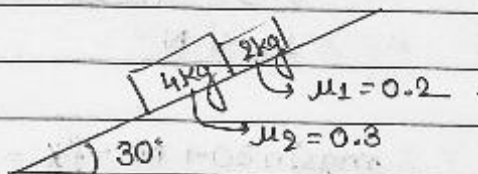 4kg 2kg
μ1 = 0.2
μ2 = 0.3
30°